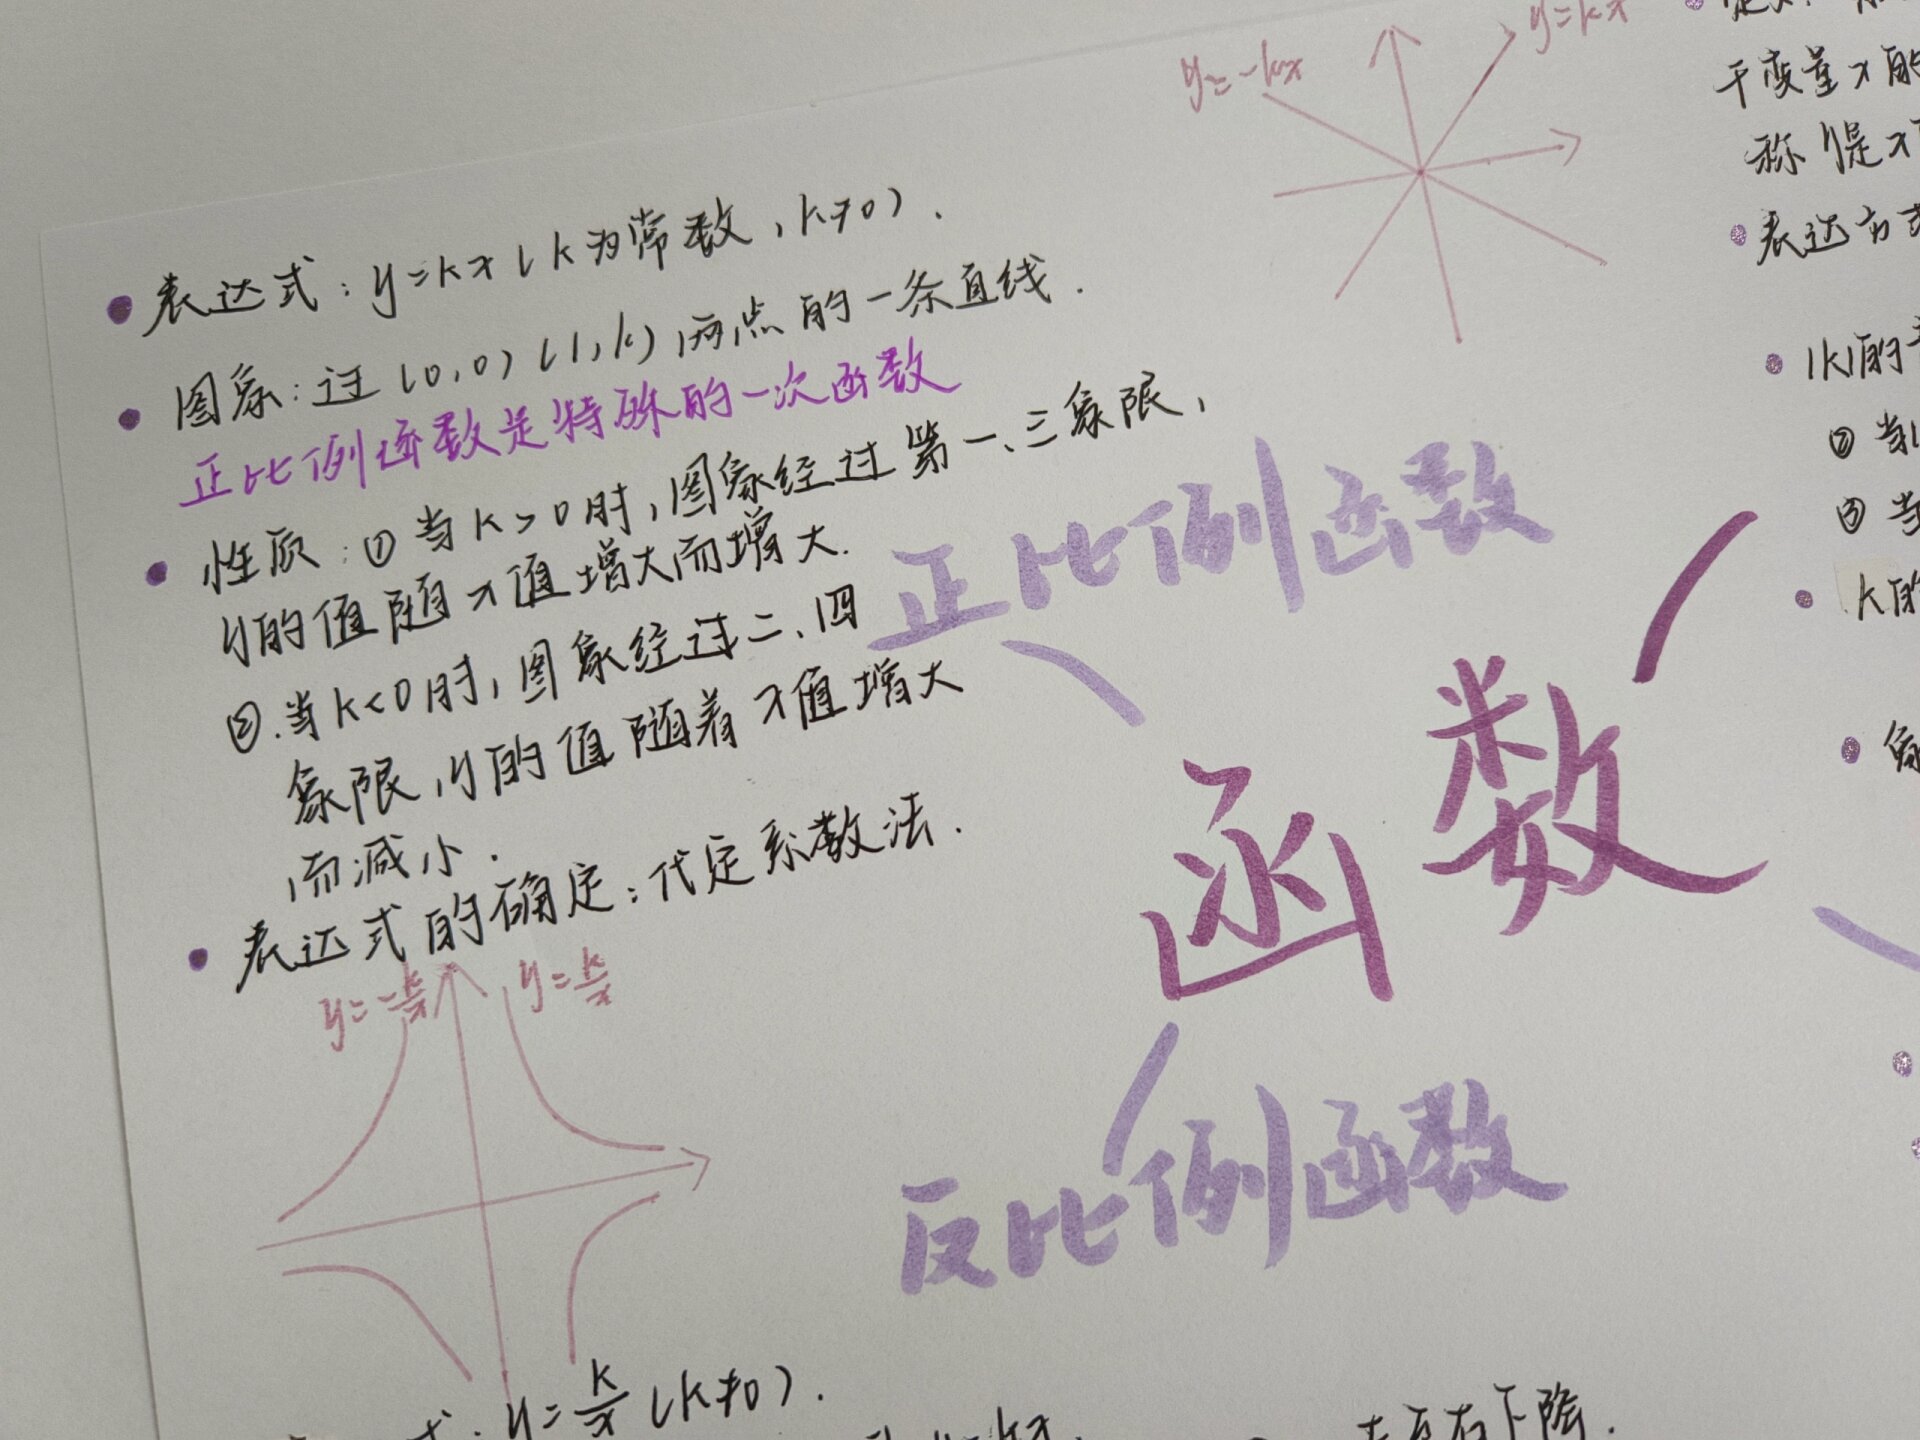 y=-kx
y=kx
表达式：y=kx（k为常数，k≠0）．
图象：过（0,0）（1,k）两点的一条直线．
正比例函数是特殊的一次函数
性质：①当k>0时，图象经过第一、三象限，
y的值随x值增大而增大．
②．当k<0时，图象经过二、四
象限，y的值随着x值增大
而减小．
表达式的确定：代定系数法．
正比例函数
函数
反比例函数
y=-k/x
y=k/x
式：y=k/x（k≠0）．
右下降．
干变量x的
称y是x
表达方式
|k|的
② 当
③ 当
k的
象